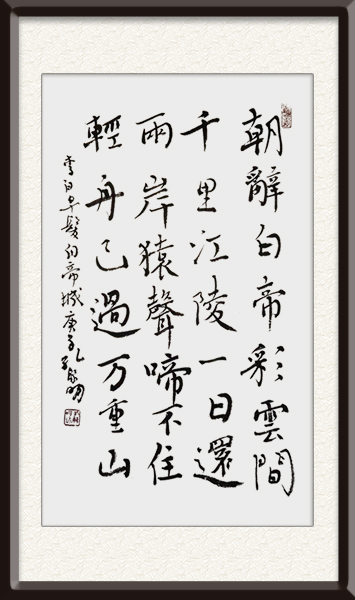 朝辭白帝彩雲間
千里江陵一日還
兩岸猿聲啼不住
輕舟已過万重山
李白早髮白帝城庚子孔明